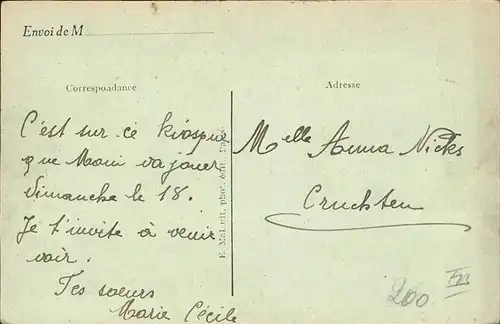 Envoi de M
Correspondance
Adresse
C'est sur ce kiosque
que Mani va jouer
dimanche le 18.
Je t'invite à venir
voir.
Tes soeurs
Marie Cécile
Melle Anna Nicks
Cruchten
200